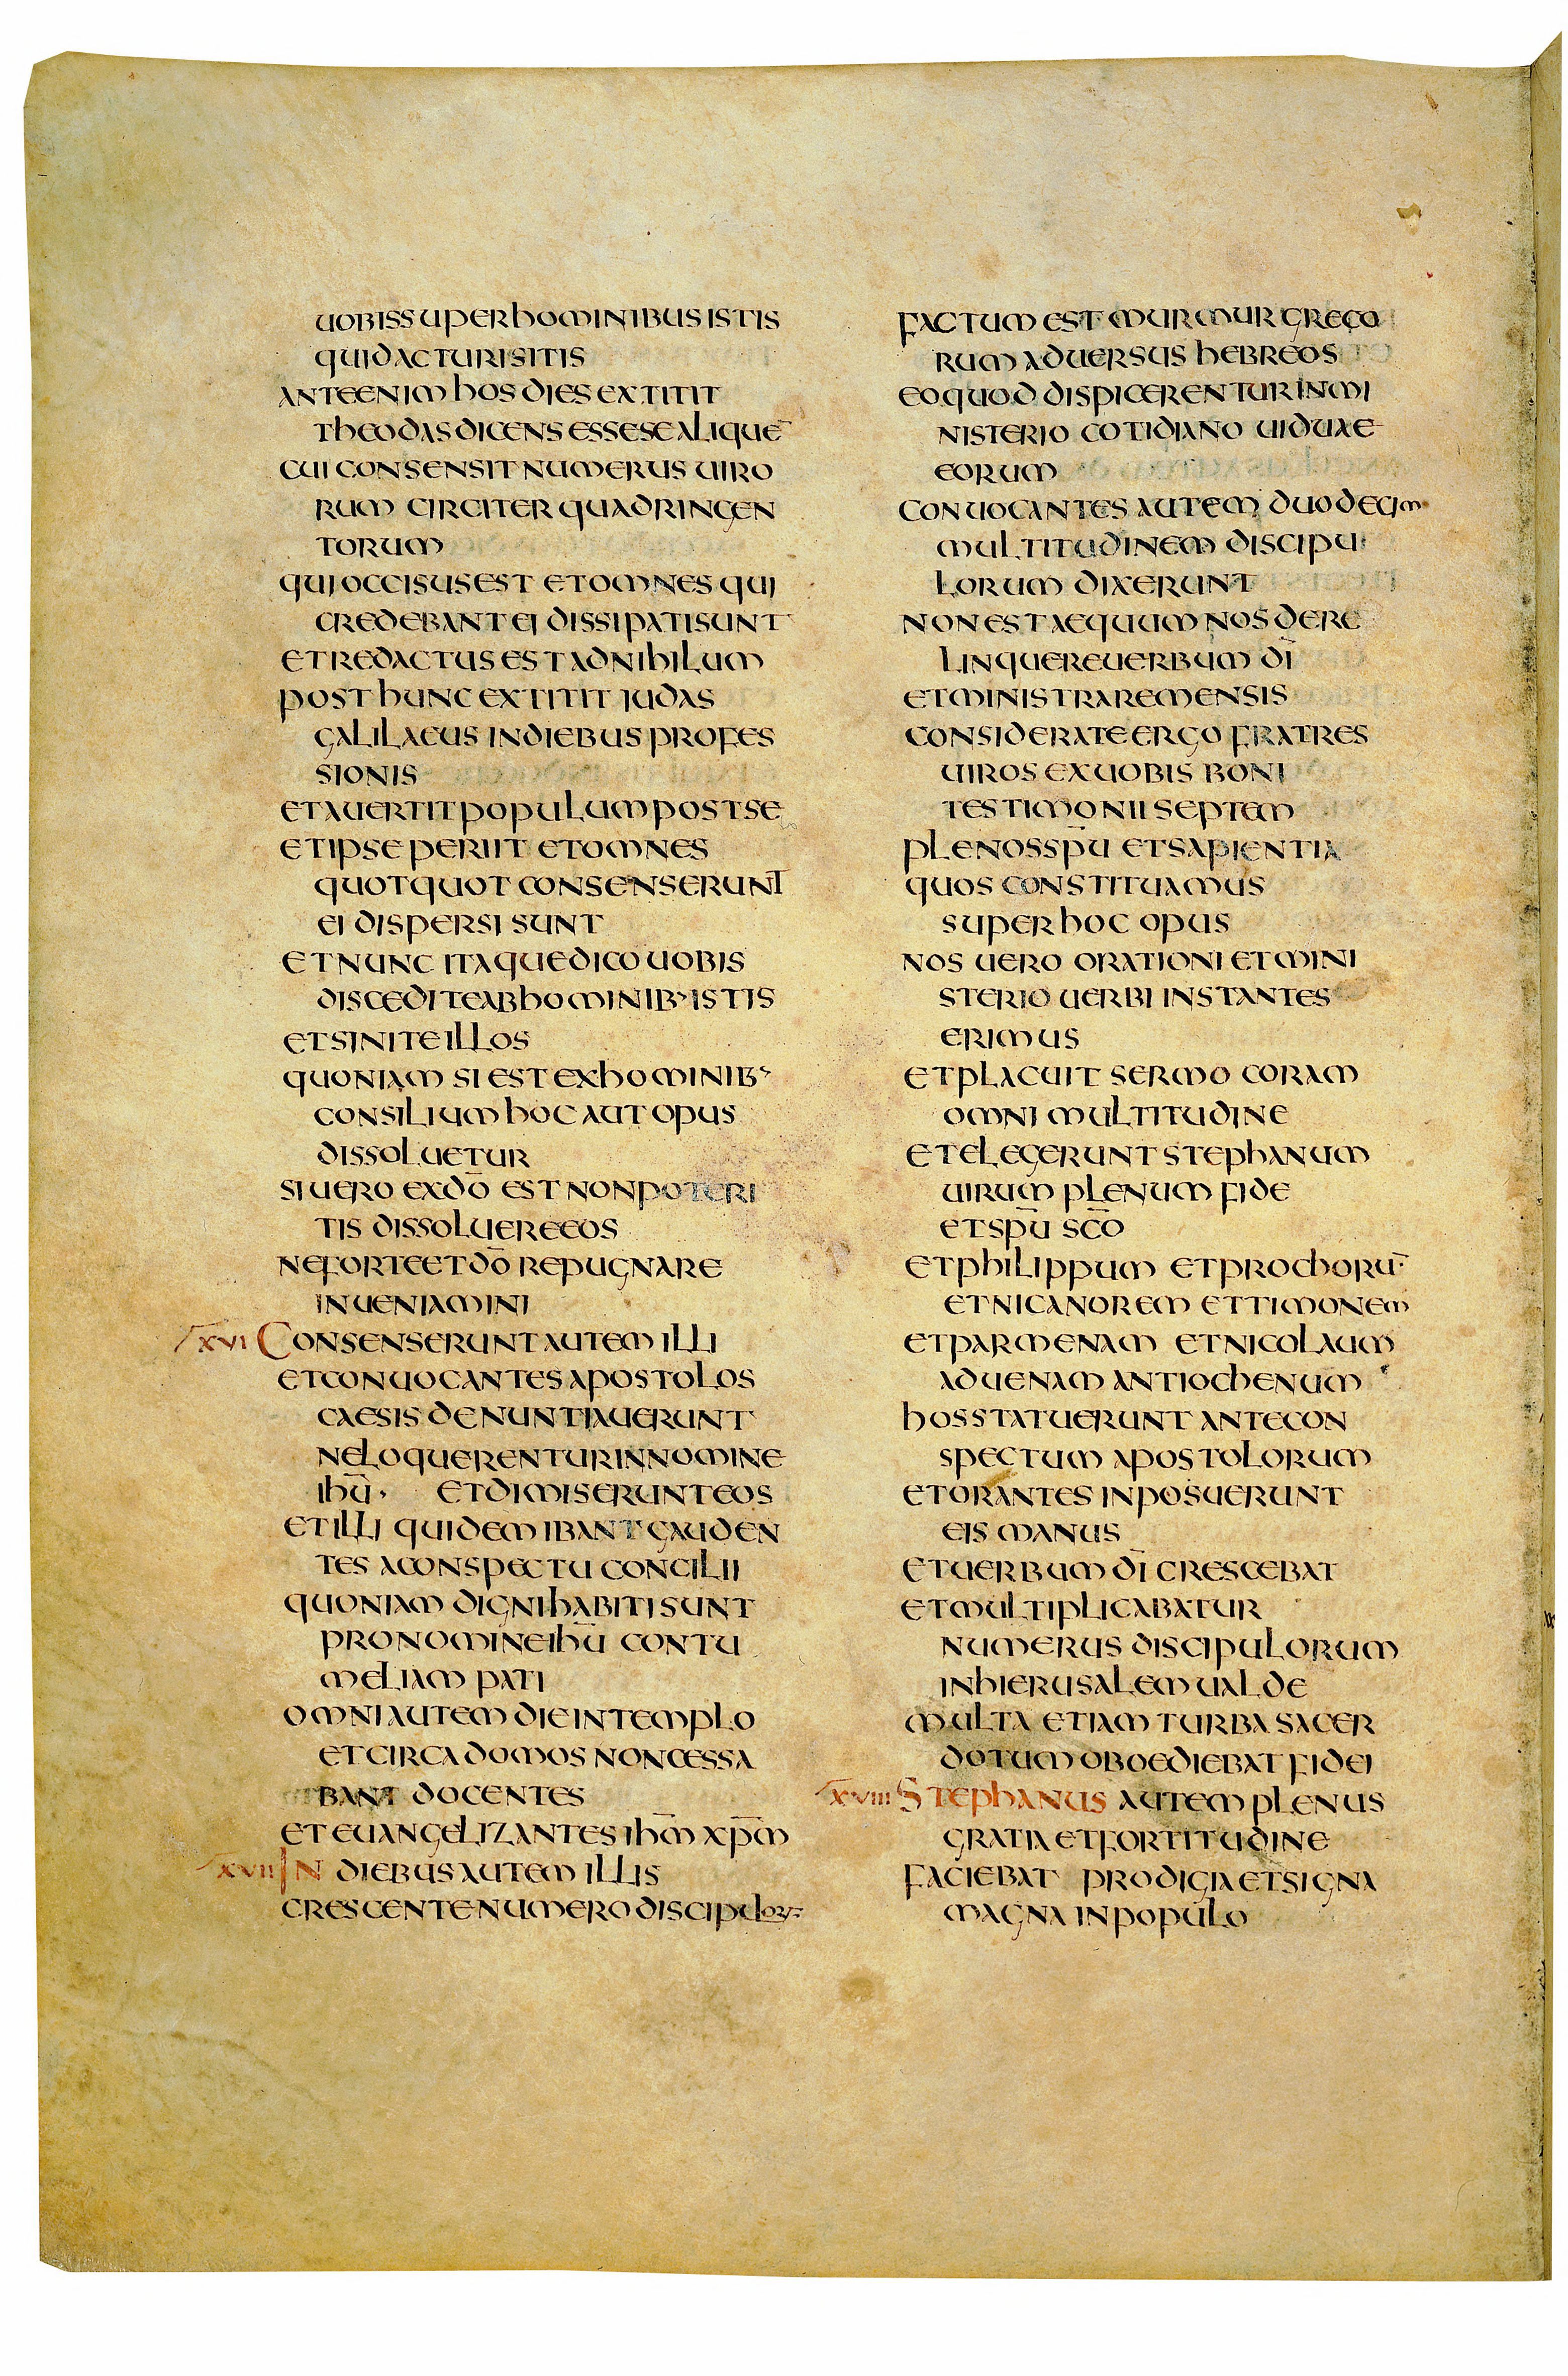 UOBIS SUPER hOMINIBUS ISTIS
QUID ACTURI SITIS
ANTE ENIM hOS DIES EXTITIT
ThEODAS DICENS ESSE SE ALIQUE̅
CUI CONSENSIT NUMERUS UIRO
RUM CIRCITER QUADRINGEN
TORUM
QUI OCCISUS EST ET OMNES QUI
CREDEBANT EI DISSIPATI SUNT
ET REDACTUS EST AD NIhILUM
POST hUNC EXTITIT IUDAS
GALILAEUS IN DIEBUS PROFES
SIONIS
ET AUERTIT POPULUM POST SE
ET IPSE PERIIT ET OMNES
QUOTQUOT CONSENSERUNT
EI DISPERSI SUNT
ET NUNC ITAQUE DICO UOBIS
DISCEDITE AB hOMINIB' ISTIS
ET SINITE ILLOS
QUONIAM SI EST EX hOMINIB'
CONSILIUM hOC AUT OPUS
DISSOLUETUR
SI UERO EX D̅O̅ EST NON POTERI
TIS DISSOLUERE EOS
NE FORTE ET D̅O̅ REPUGNARE
INUENIAMINI
XVI CONSENSERUNT AUTEM ILLI
ET CONUOCANTES APOSTOLOS
CAESIS DENUNTIAUERUNT
NE LOQUERENTUR IN NOMINE
Ih̅U̅· ET DIMISERUNT EOS
ET ILLI QUIDEM IBANT GAUDEN
TES A CONSPECTU CONCILII
QUONIAM DIGNI hABITI SUNT
PRO NOMINE Ih̅U̅ CONTU
MELIAM PATI
OMNI AUTEM DIE IN TEMPLO
ET CIRCA DOMOS NON CESSA
BANT DOCENTES
ET EUANGELIZANTES Ih̅M̅ XP̅M̅
XVII IN DIEBUS AUTEM ILLIS
CRESCENTE NUMERO DISCIPULOꝜ
FACTUM EST MURMUR GRECO
RUM ADUERSUS hEBREOS
EO QUOD DISPICERENTUR IN MI
NISTERIO COTIDIANO UIDUAE
EORUM
CONUOCANTES AUTEM DUODECIM
MULTITUDINEM DISCIPU
LORUM DIXERUNT
NON EST AEQUUM NOS DERE
LINQUERE UERBUM D̅I̅
ET MINISTRARE MENSIS
CONSIDERATE ERGO FRATRES
UIROS EX UOBIS BONI
TESTIMONII SEPTEM
PLENOS SP̅U̅ ET SAPIENTIA
QUOS CONSTITUAMUS
SUPER hOC OPUS
NOS UERO ORATIONI ET MINI
STERIO UERBI INSTANTES
ERIMUS
ET PLACUIT SERMO CORAM
OMNI MULTITUDINE
ET ELEGERUNT STEPhANUM
UIRUM PLENUM FIDE
ET SP̅U̅ SC̅O̅
ET PhILIPPUM ET PROChORU̅·
ET NICANOREM ET TIMONEM
ET PARMENAM ET NICOLAUM
ADUENAM ANTIOChENUM
hOS STATUERUNT ANTE CON
SPECTUM APOSTOLORUM
ET ORANTES INPOSUERUNT
EIS MANUS
ET UERBUM D̅I̅ CRESCEBAT
ET MULTIPLICABATUR
NUMERUS DISCIPULORUM
IN hIERUSALEM UALDE
MULTA ETIAM TURBA SACER
DOTUM OBOEDIEBAT FIDEI
XVIII STEPhANUS AUTEM PLENUS
GRATIA ET FORTITUDINE
FACIEBAT PRODIGIA ET SIGNA
MAGNA IN POPULO